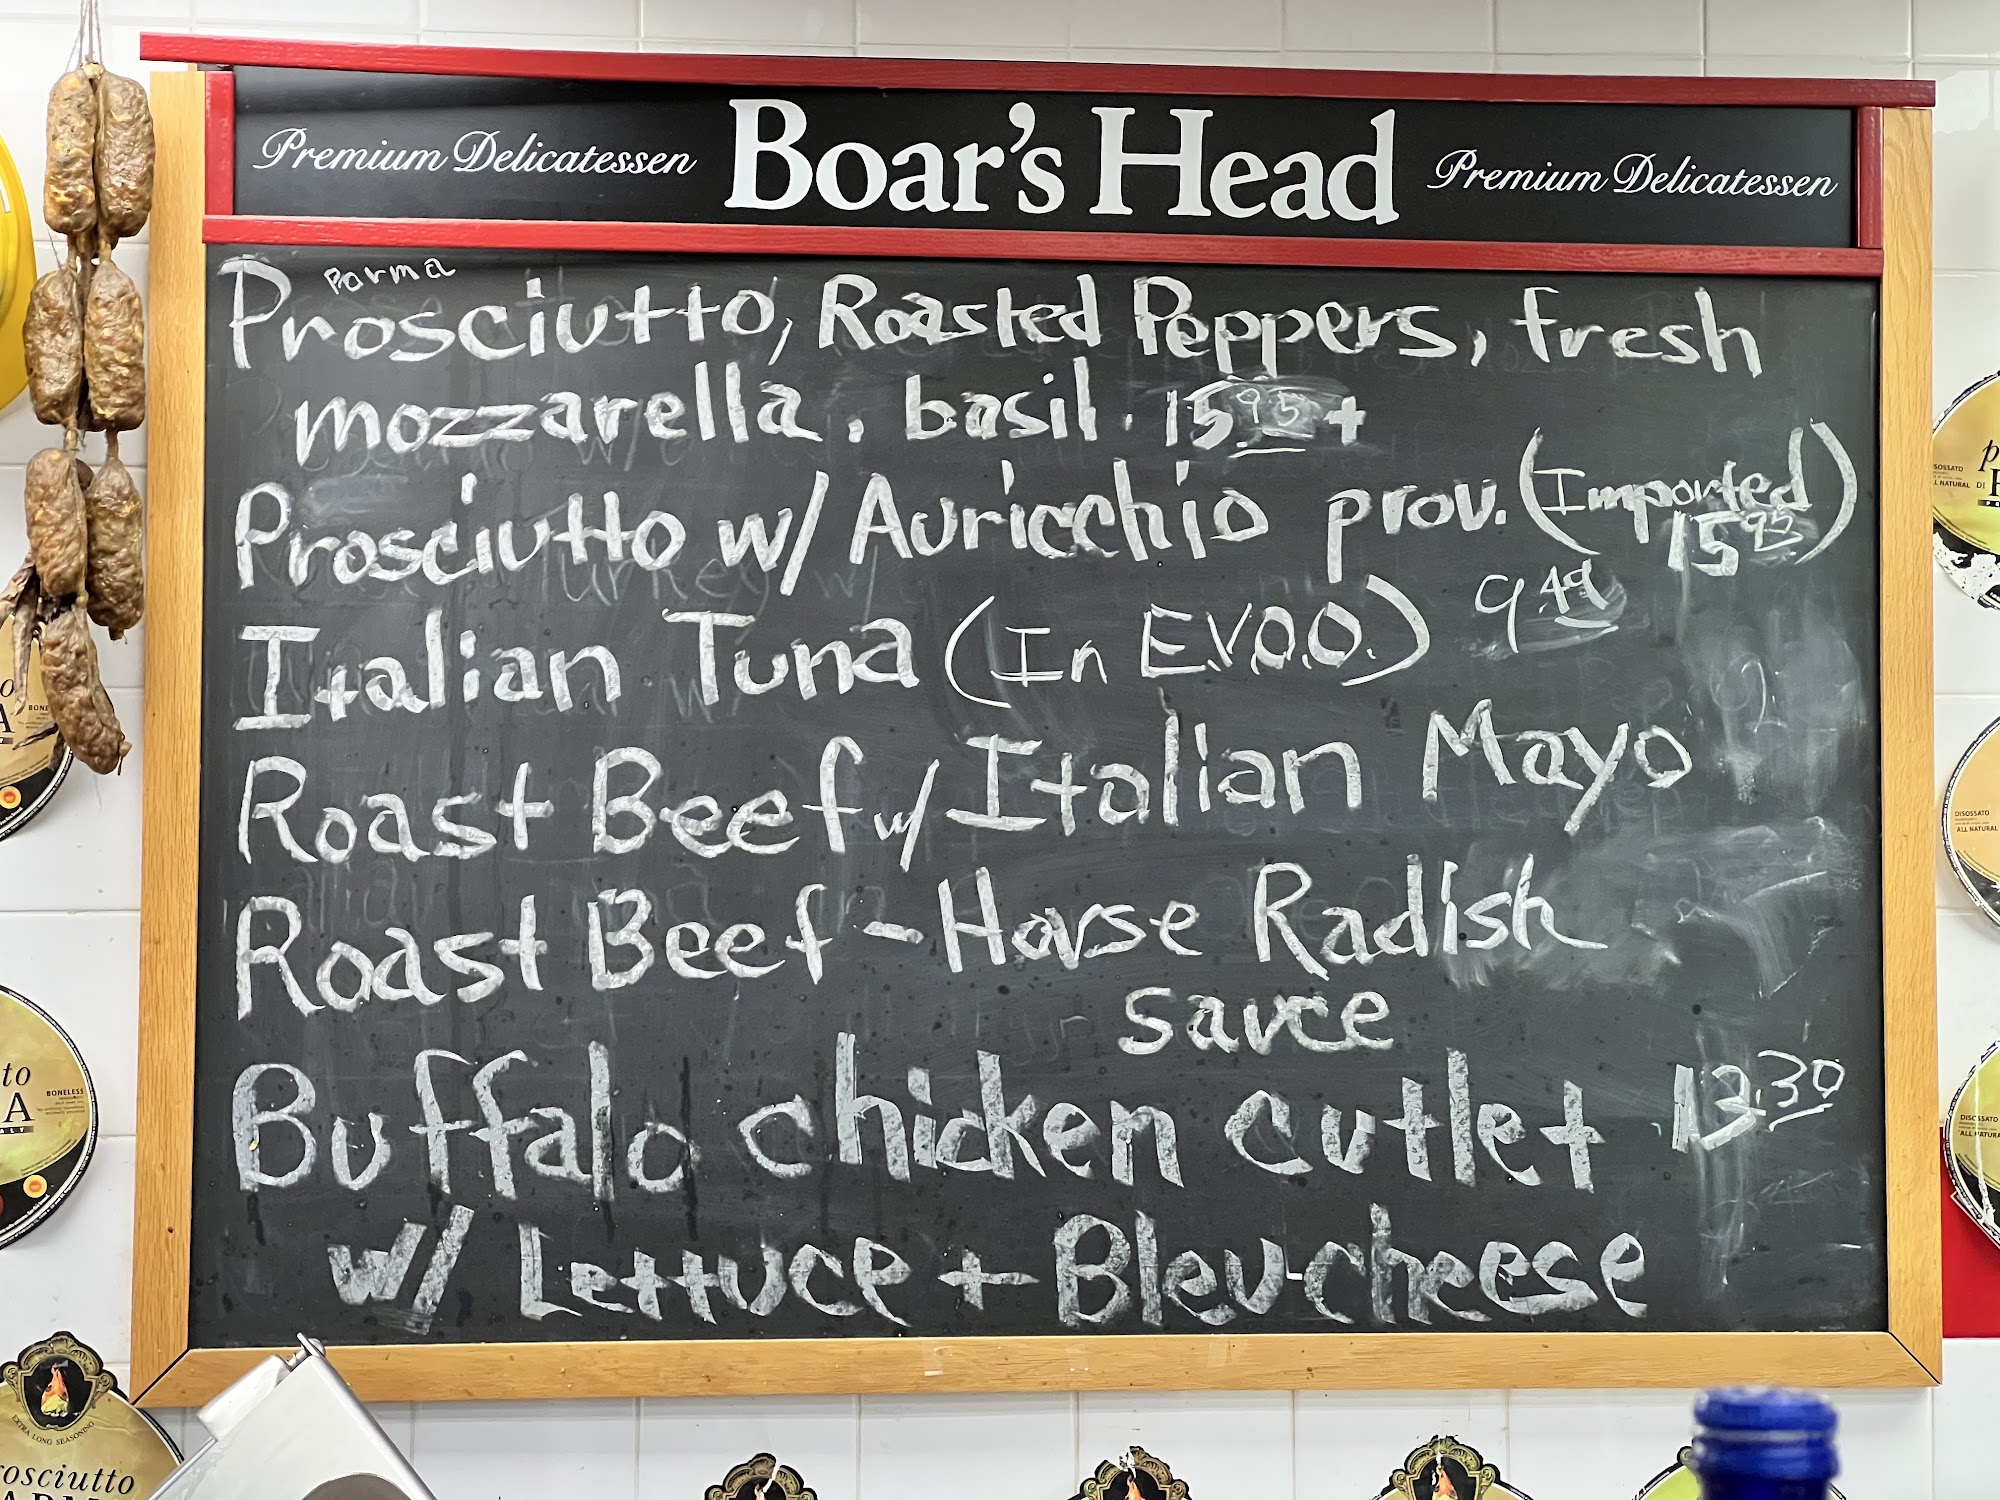 Premium Delicatessen Boar's Head Premium Delicatessen
Parma
Prosciutto, Roasted Peppers, fresh
mozzarella, basil. 15.95 +
Prosciutto w/ Auricchio prov. (Imported)
15.95
Italian Tuna (In E.V.O.O.) 9.49
Roast Beef w/ Italian Mayo
Roast Beef - Horse Radish
sauce
Buffalo chicken cutlet 13.30
w/ Lettuce + Bleu cheese
DISOSSATO
ALL NATURAL
DI
DISOSSATO
ALL NATURAL
DISOSSATO
ALL NATURAL
BONELESS
ITALY
EXTRA LONG SEASONING
rosciutto